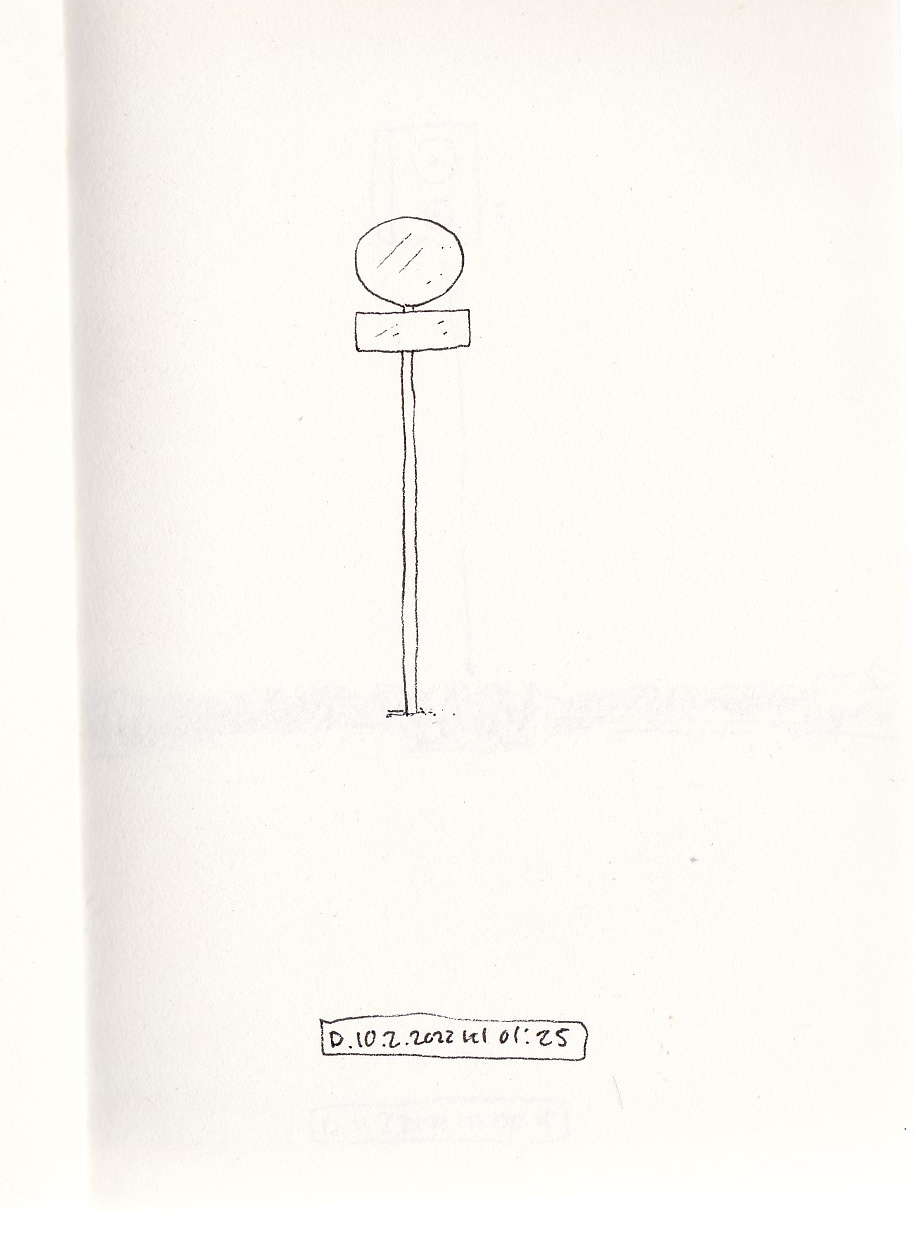 D.10.2.2022 kl 01:25